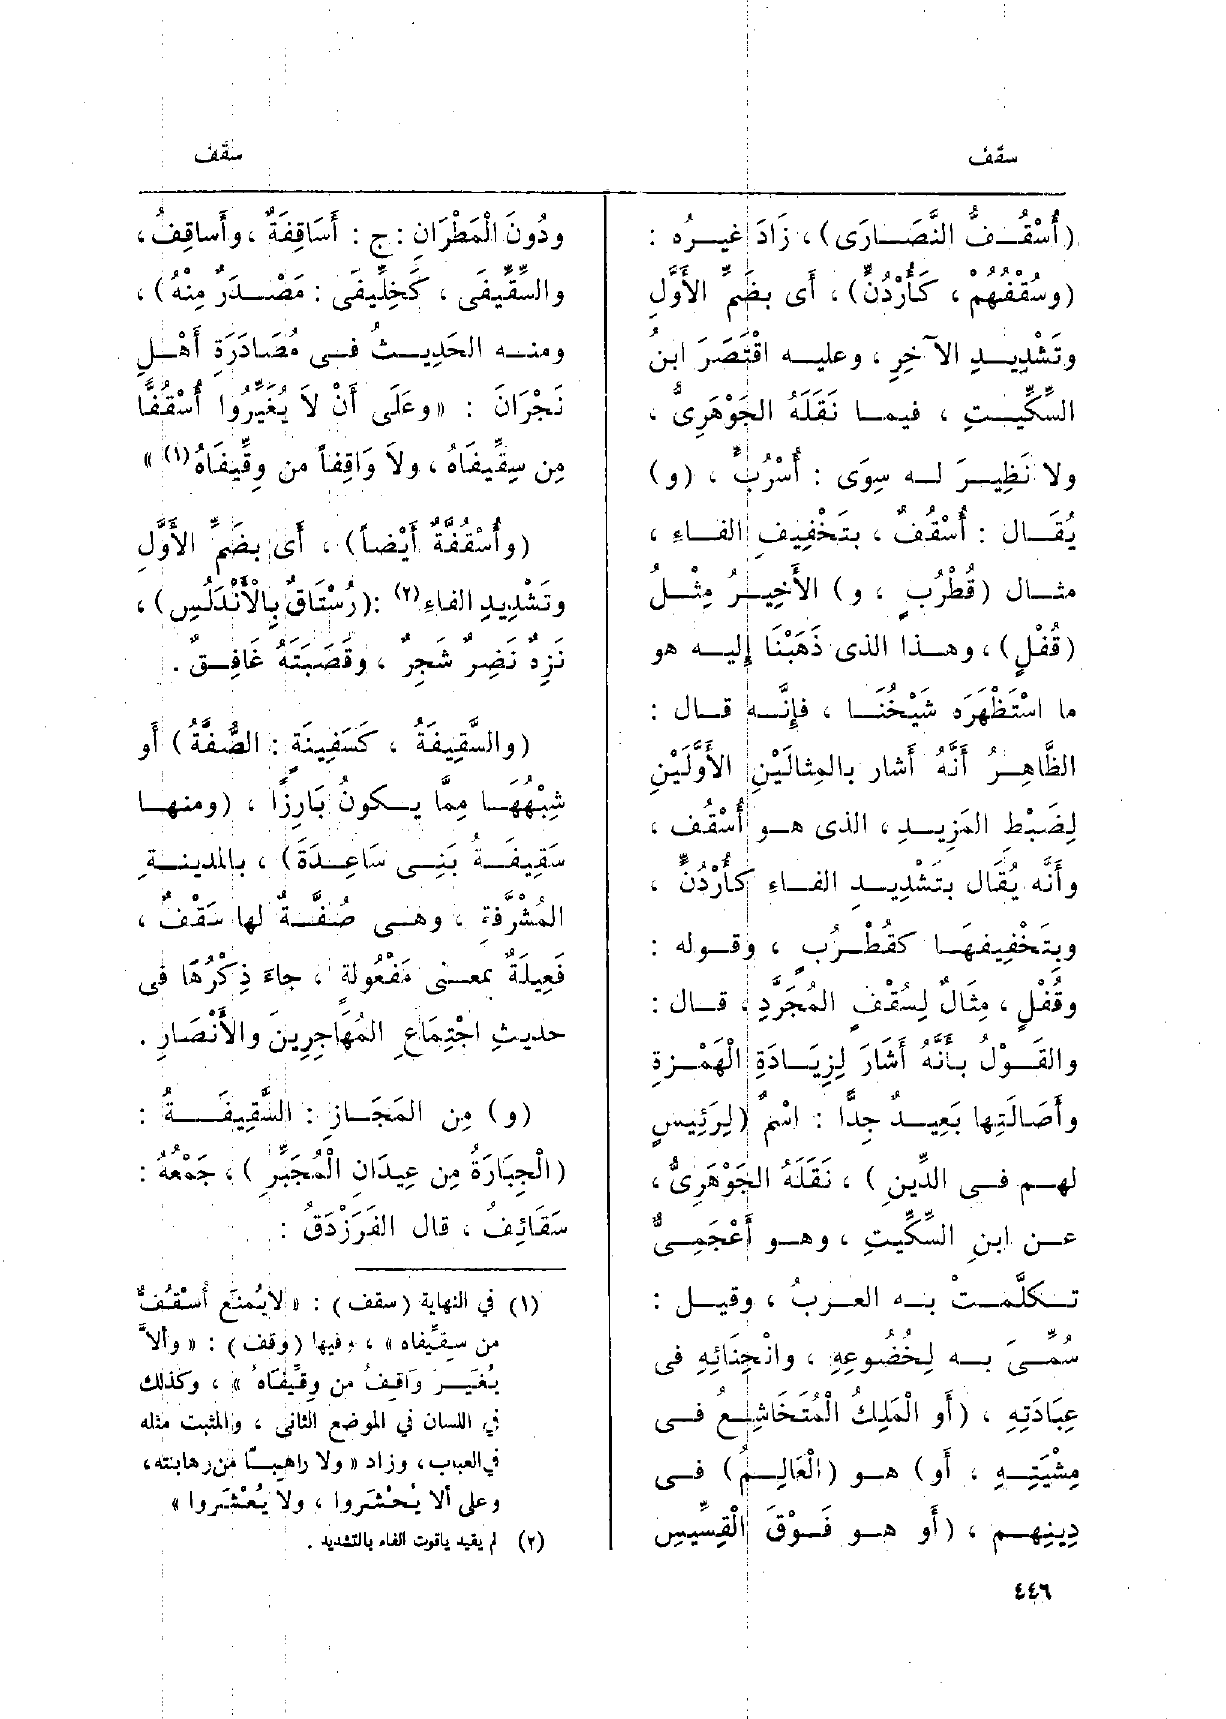 سقف
سقف
(أُسْقُفُّ النَّصَارَى) ، زَادَ غيرُه :
(وسُقُفُهُمْ ، كَأُرْدُنٍّ) ، أى بضَمِّ الأَوَّلِ
وتَشْدِيدِ الآخِرِ ، وعليه اقْتَصَرَ ابنُ
السِّكِّيتِ ، فيما نَقَلَهُ الجَوْهَرِىُّ ،
ولا نَظِيرَ له سِوَى : أُسْرُبٍّ ، (و)
يُقَال : أُسْقُفٌ ، بتَخْفِيفِ الفاءِ ،
مثال (قُطْرُبٍ ، و) الأَخِيرُ مِثْلُ
(قُفْلٍ) ، وهذا الذى ذَهَبْنَا إِليه هو
ما اسْتَظْهَرَه شَيْخُنَا ، فإِنَّه قال :
الظَّاهِرُ أَنَّهُ أَشار بالمِثالَيْنِ الأَوَّلَيْنِ
لِضَبْطِ المَزِيدِ ، الذى هو أُسْقُف ،
وأَنَّه يُقَال بتَشْدِيدِ الفاءِ كأُرْدُنٍّ ،
وبتَخْفِيفِهَا كقُطْرُبٍ ، وقوله :
وقُفْلٍ ، مِثَالٌ لِسُقْفٍ المُجَرَّدِ ، قال :
والقَوْلُ بأَنَّهُ أَشَارَ لِزِيَادَةِ الْهَمْزةِ
وأَصَالَتِها بَعِيدٌ جِدًّا : اسْمٌ (لِرَئِيسٍ
لهم فى الدِّينِ ) ، نَقَلَهُ الجَوْهَرِىُّ ،
عن ابنِ السِّكِّيتِ ، وهو أَعْجَمِىٌّ
تكلَّمَتْ به العربُ ، وقيل :
سُمِّىَ به لِخُضُوعِهِ ، وانْحِنَائِهِ فى
عِبَادَتِهِ ، (أَو الْمَلِكُ الْمُتَخَاشِعُ فى
مِشْيَتِهِ ، أَو) هو (الْعَالِمُ) فى
دِينِهم ، (أَو هو فَوْقَ الْقِسِّيسِ
ودُونَ الْمَطْرَانِ : ج : أَسَاقِفَةٌ ، وأَساقِفُ ،
والسِّقِّيفَى ، كَخِلِّيفَى : مَصْدَرٌ مِنْهُ) ،
ومنه الحَدِيثُ فى مُصَادَرَةِ أَهْلِ
نَجْرَانَ : «وعَلَى أَنْ لَا يُغَيِّرُوا أُسْقُفًّا
مِن سِقِّيفَاهُ ، ولاَ وَاقِفاً من وِقِّيفَاهُ(١) »
(وأُسْقُفَّةٌ أَيْضاً) ، أَى بضَمِّ الأَوَّلِ
وتَشْدِيدِ الفاءِ(٢) : (رُسْتَاقٌ بِالأَنْدَلُسِ) ،
نَزِهٌ نَضِرٌ شَجِرٌ ، وقَصَبَتَهُ غَافِقٌ .
(والسَّقِيفَةُ ، كسَفِينَةٍ : الصُّفَّةُ) أَو
شِبْهُهَا مِمَّا يكونُ بَارِزًا ، (ومنها
سَقِيفَةُ بَنِى سَاعِدَةَ) ، بالمدينةِ
المُشَرَّفةِ ، وهى صُفَّةٌ لها سَقْفٌ ،
فَعِيلَةٌ بمعنى مَفْعُولةٍ ، جاءَ ذِكْرُهَا فى
حديثِ اجْتِمَاعِ المُهَاجِرِينَ والأَنْصَارِ .
(و) مِن المَجَازِ : السَّقِيفَةُ :
(الْجِبَارَةُ مِن عِيدَانِ الْمُجَبِّرِ ) ، جَمْعُهُ :
سَقَائِفُ ، قال الفَرَزْدَقُ :
(١) في النهاية (سقف) : « لا يُمنَع أُسْقُفٌ
من سقِّيفاه » ، وفيها (وقف) : « وألاَّ
يُغَير وَاقِفٌ من وِقِّيفَاهُ » ، وكذلك
في اللسان في الموضع الثانى ، والمثبت مثله
في العباب ، وزاد « ولا راهِباً من رهابنته ،
وعلى ألا يُحْشَروا ، ولا يُعْشَروا »
(٢) لم يقيد ياقوت الفاء بالتشديد .
٤٤٦